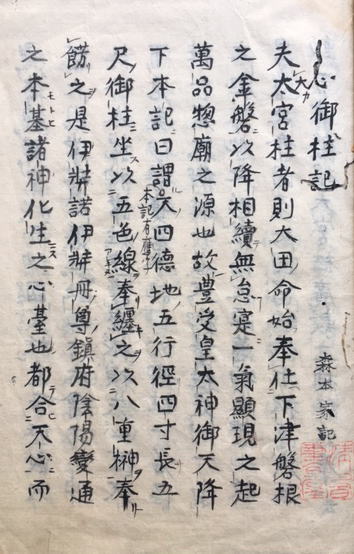 心御柱記
森本家記
夫太宮柱者則大田命始奉仕下津磐根
之金磐以降相續無怠寔一氣顯現之起
萬品惣廟之源也故豊受皇太神御天降
下本記曰謂天四德地五行徑四寸長五
尺御柱坐以五色線奉纏之以八重榊奉
餝之是伊弉諾伊弉冊尊鎮府陰陽變通
之本基諸神化生之心臺也都合天心而